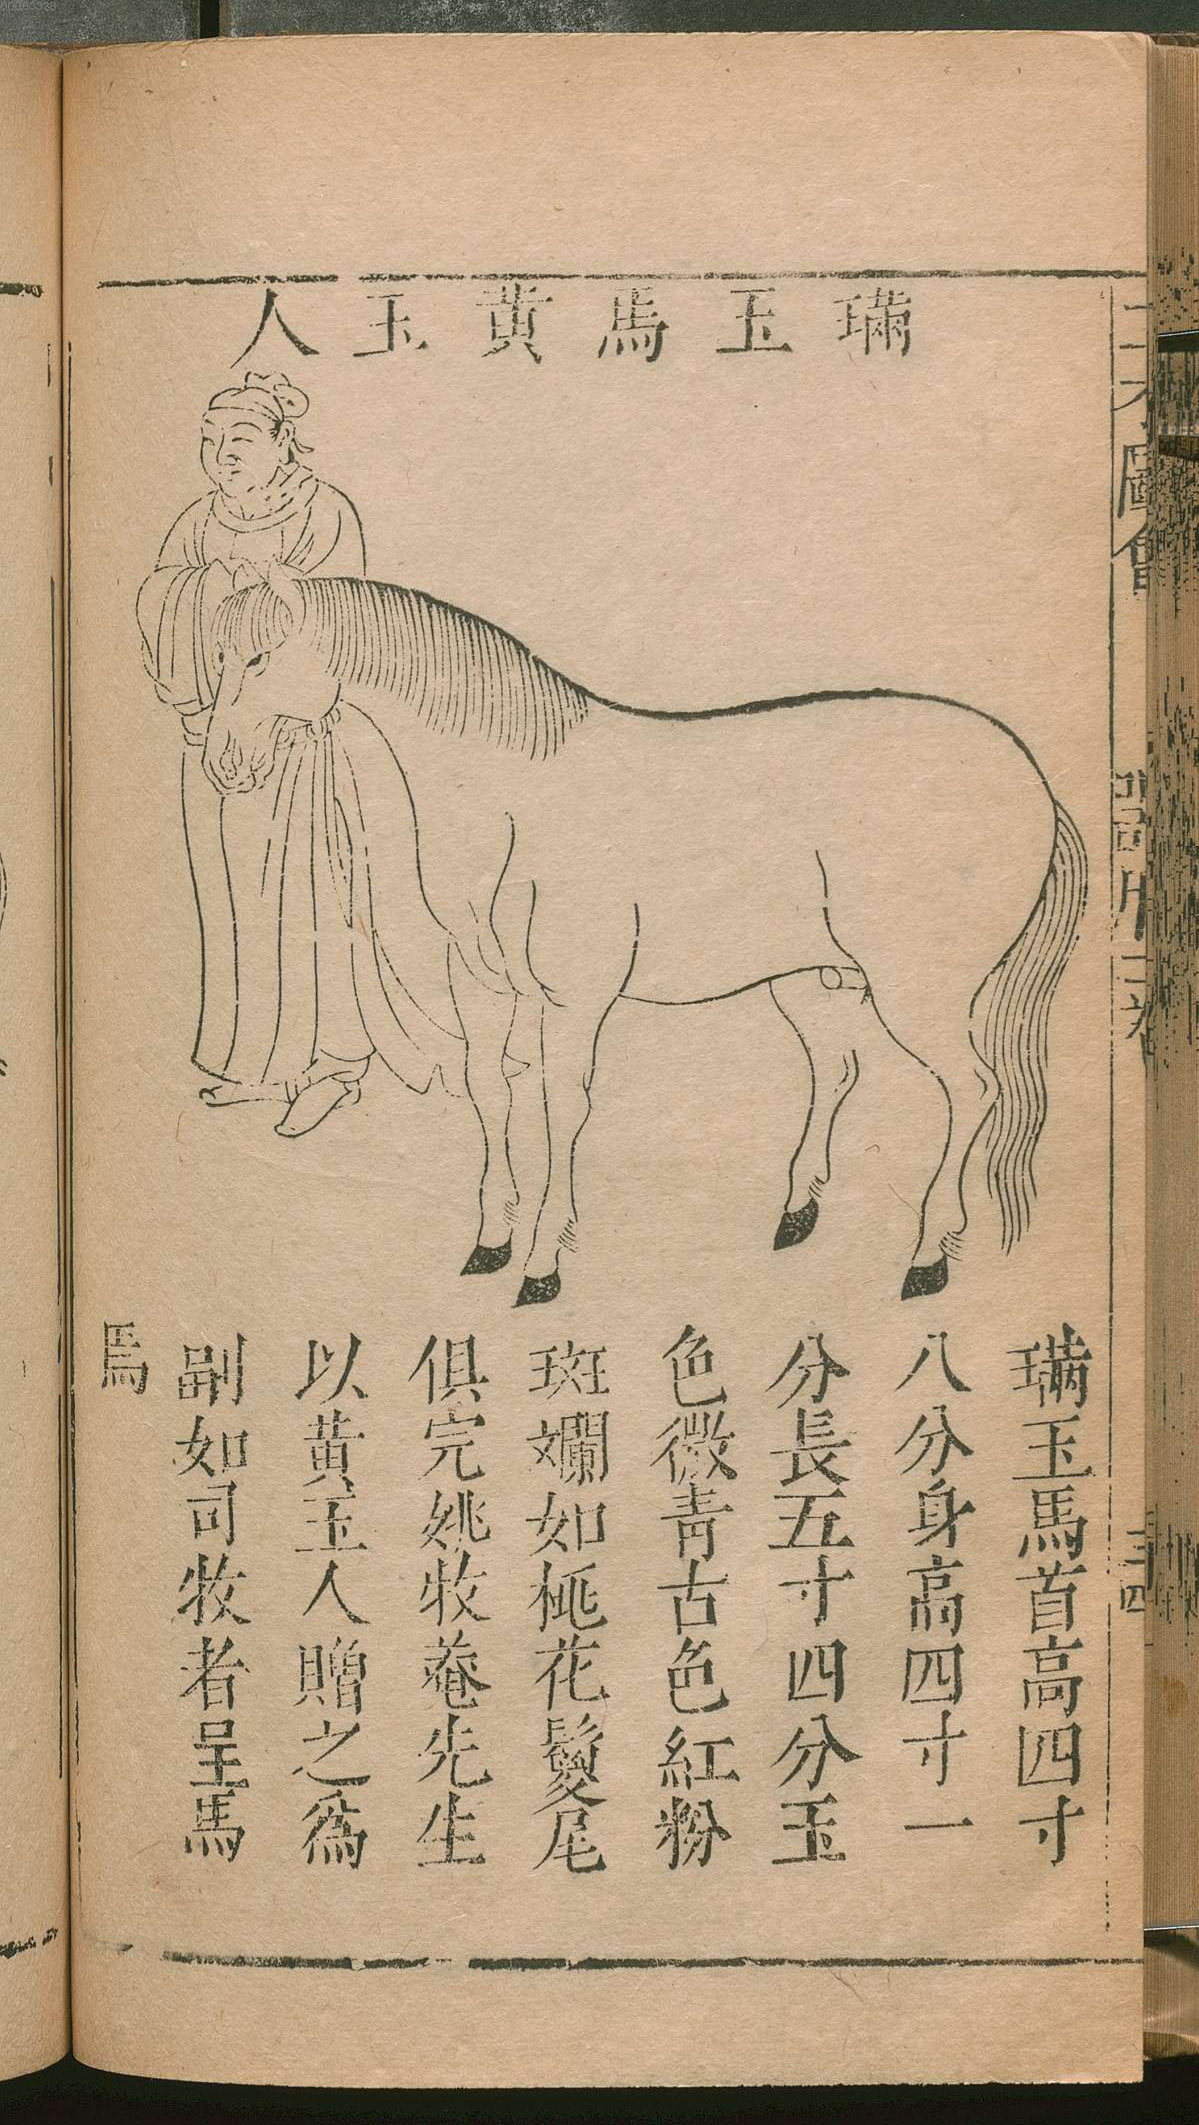 00063338
璊玉馬黃玉人
璊玉馬首高四寸
八分身高四寸一
分長五寸四分玉
色微青古色紅粉
斑斕如桃花鬉尾
俱完姚牧菴先生
以黃玉人贈之為
副如司牧者呈馬
焉
三才圖會
器用二卷
三四